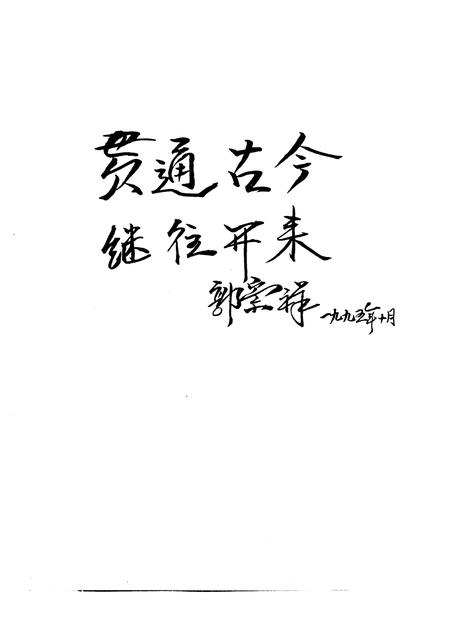 贯通古今
继往开来
郭宗祥 一九九五年十月